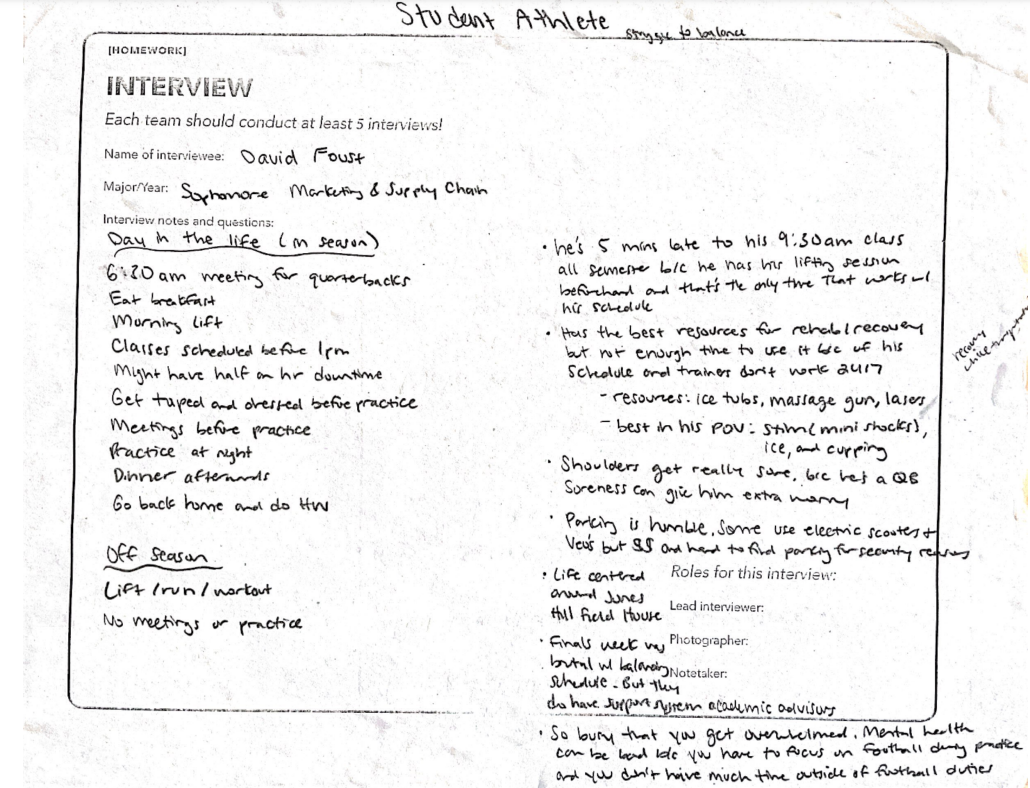 Student Athlete
struggle to balance
[HOMEWORK]
INTERVIEW
Each team should conduct at least 5 interviews!
Name of interviewee: David Foust
Major/Year: Sophomore Marketing & Supply Chain
Interview notes and questions:
Day in the life (in season)
6:20am meeting for quarterbacks
Eat breakfast
Morning lift
Classes scheduled before 1pm
Might have half an hr downtime
Get taped and dressed before practice
Meetings before practice
Practice at night
Dinner afterwards
Go back home and do HW
Off season
Lift/run/workout
No meetings or practice
• he's 5 mins late to his 9:30am class
all semester b/c he has his lifting session
beforehand and that's the only time that works w/
his schedule
• Has the best resources for rehab/recovery
but not enough time to use it b/c of his
schedule and trainers don't work 24/7
- resources: ice tubs, massage gun, lasers
- best in his POV: stim (mini shocks),
ice, and cupping
• Shoulders get really sore, b/c he's a QB
Soreness can give him extra worry
• Parking is horrible, some use electric scooters +
Veo's but $$ and hard to find parking for security reasons
• Life centered
around Jones
Hill Field House
Roles for this interview:
Lead interviewer:
Photographer:
Notetaker:
• Finals week
brutal w/ balancing
schedule. But they
do have support system academic advisors
• So busy that you get overwhelmed. Mental health
can be bad b/c you have to focus on football during practice
and you don't have much time outside of football duties
recovery
while